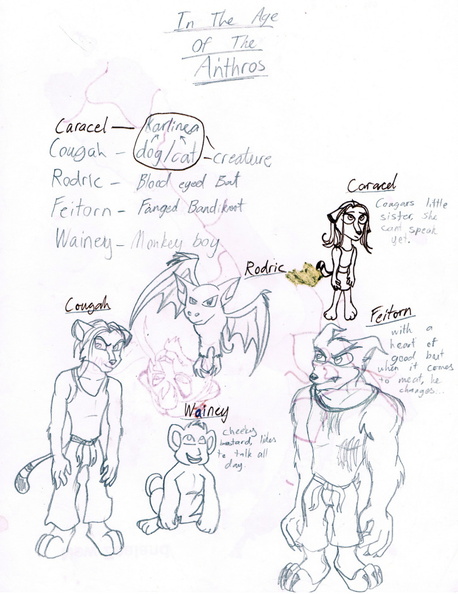 In The Age
Of The
Anthros
Caracel — Karlinea
Cougah - dog/cat - creature
Rodric - Blood eyed Bat
Feitorn - Fanged Bandikoot
Wainey - Monkey boy
Caracel
Cougars little
sister, she
cant speak
yet.
Rodric
Cougah
Feitorn
with a
heart of
good but
when it comes
to meat, he
changes...
Wainey
cheeky
bastard, likes
to talk all
day.